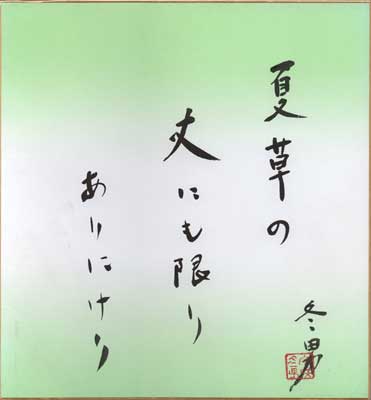 夏草の
丈にも限り
ありにけり
冬男